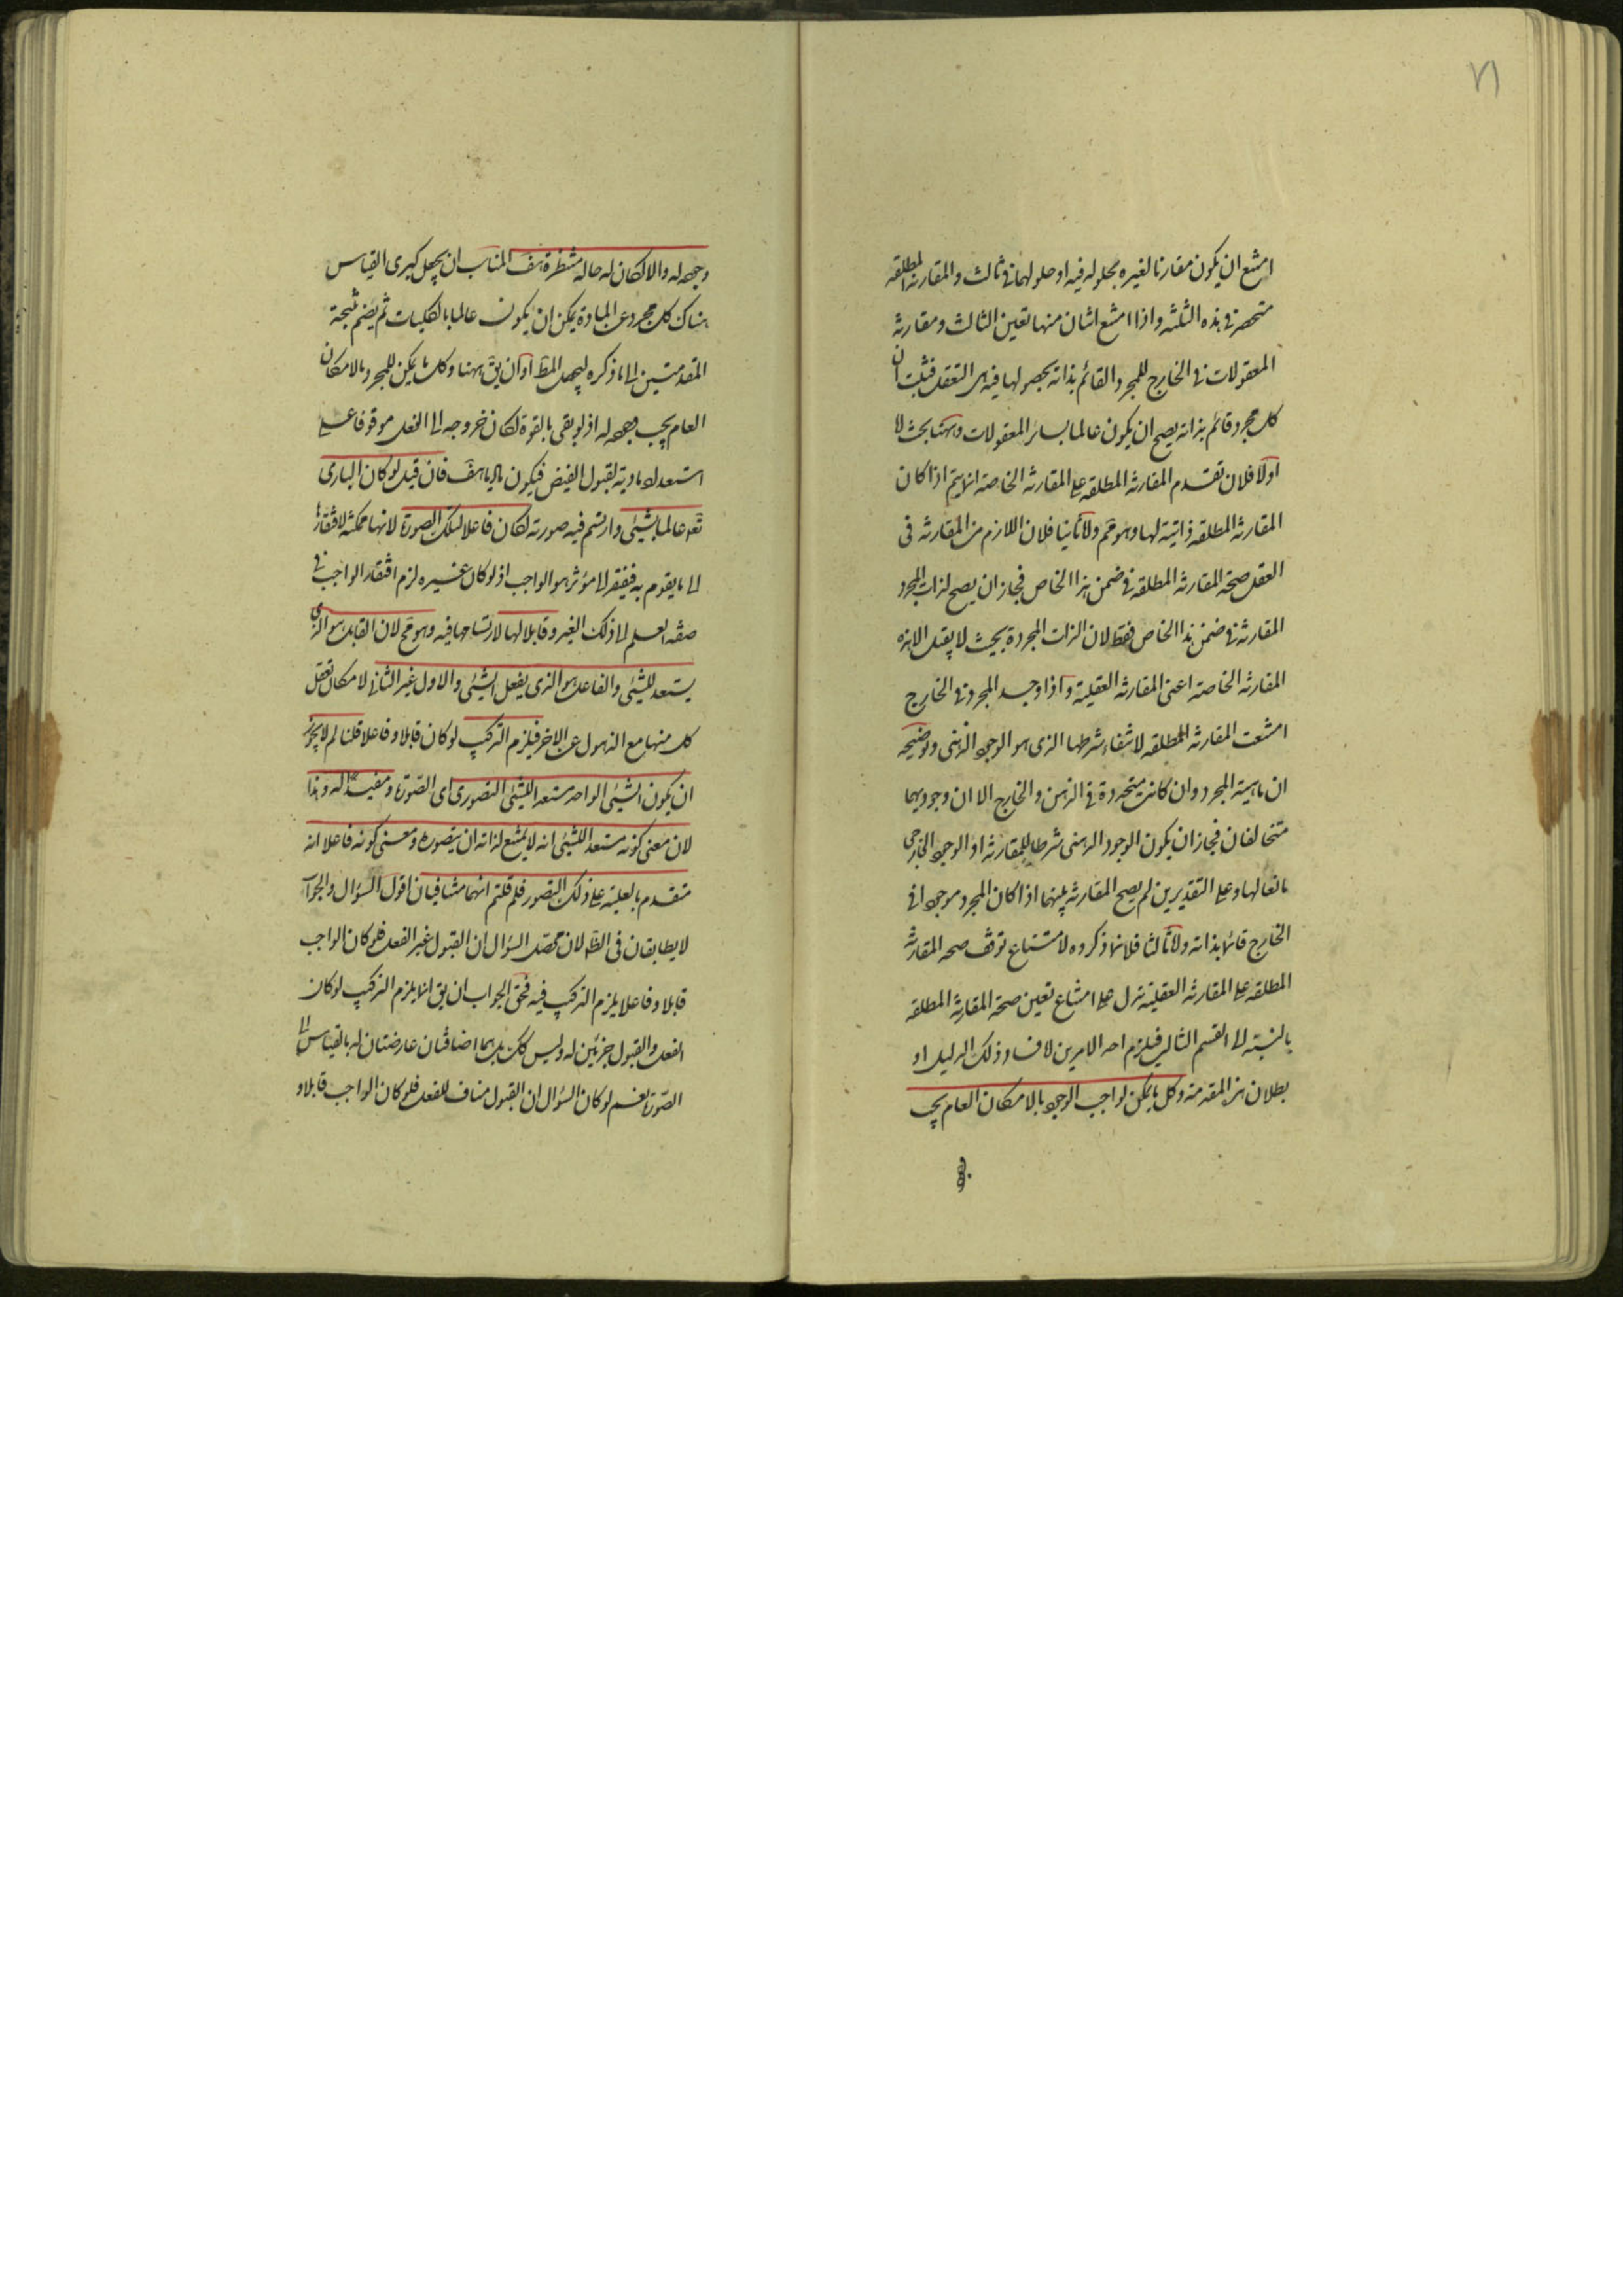 ٧١
امتنع ان يكون مقارنا لغيره بحلوله فيه او حلولهما فى ثالث والمقارنة المطلقه
منحصرة فى هذه الثلثه واذا امتنع اثنان منها تعين الثالث ومقارنة
المعقولات فى الخارج للمجرد القائم بذاته بحصولها فيه هى التعقل فثبت ان
كل مجرد قائم بذاته يصح ان يكون عالما بسائر المعقولات وههنا بحث لا
اولا فلان تقدم المقارنة المطلقه على المقارنة الخاصه انما يتم اذا كان
المقارنة المطلقه ذاتية لها وهو مم ولا ثانيا فلان اللازم من المقارنه فى
العقل صحة المقارنة المطلقه فى ضمن هذا الخاص فجاز ان يصح لذات المجرد
المقارنة فى ضمن هذا الخاص فقط لان الذات المجردة بحيث لا يقبل الا هذه
المقارنة الخاصه اعنى المقارنة العقلية واذا وجد المجرد فى الخارج
امتنعت المقارنة المطلقه لانتفاء شرطها الذى هو الوجود الذهنى وتوضيحه
ان ماهية المجرد وان كانت متحدة فى الذهن والخارج الا ان وجوديهما
متخالفان فجاز ان يكون الوجود الذهنى شرطا للمقارنة او الوجود الخارجى
مانعا لها وعلى التقديرين لم يصح المقارنة بينهما اذا كان المجرد موجودا فى
الخارج قائما بذاته ولا ثالثا فلان ما ذكروه لامتناع توقف صحة المقارنة
المطلقه على المقارنة العقلية تدل على امتناع تعين صحة المقارنة المطلقه
بالنسبة الى القسم الثالث فيلزم احد الامرين لا فساد ذلك الدليل او
بطلان هذه المقدمة وكل ما يمكن لواجب الوجود بالامكان العام يجب
وجوده له والا لكان له حالة منتظرة هف المناسب ان يجعل كبرى القياس
هناك كل مجرد عن المادة يمكن ان يكون عالما بالكليات ثم يضم نتيجة
المقدمتين الى ما ذكره ليحصل المط او ان يق ههنا وكل ما يمكن للمجرد بالامكان
العام يجب وجوده له اذ لو بقى بالقوة لكان خروجه الى الفعل موقوفا على
استعداد مادية لقبول الفيض فيكون ماديا هف فان قيل لو كان البارى
تعه عالما بشيئ وارتسم فيه صورته لكان فاعلا لتلك الصورة لانها ممكنة لافتقارها
الى ما يقوم به فيفتقر الى مؤثر هو الواجب اذ لو كان غيره لزم افتقار الواجب فى
صفة العلم الى ذلك الغير وقابلا لها لارتسامها فيه وهو مح لان القابل هو الذى
يستعد للشيئ والفاعل هو الذى يفعل الشيئ والاول غير الثانى لامكان تعقل
كل منهما مع الذهول عن الاخر فيلزم التركيب لو كان قابلا وفاعلا قلنا لم لا يجوز
ان يكون الشيئ الواحد مستعدا للشيئ التصورى اى الصورة ومفيدا له وهذا
لان معنى كونه مستعدا للشيئ انه لا يمتنع لذاته ان يتصوره ومعنى كونه فاعلا انه
متقدم بالعلية على ذلك التصور فلم قلتم انهما متنافيان اقول السؤال والجواب
لا يطابقان فى الظ لان محصل السؤال ان القبول غير الفعل فلو كان الواجب
قابلا وفاعلا يلزم التركيب فيه فحق الجواب ان يق انما يلزم التركيب لو كان
الفعل والقبول جزئين له وليس كك بل هما اضافتان عارضتان له بالقياس الى
الصورة نعم لو كان السؤال ان القبول مناف للفعل فلو كان الواجب قابلا و